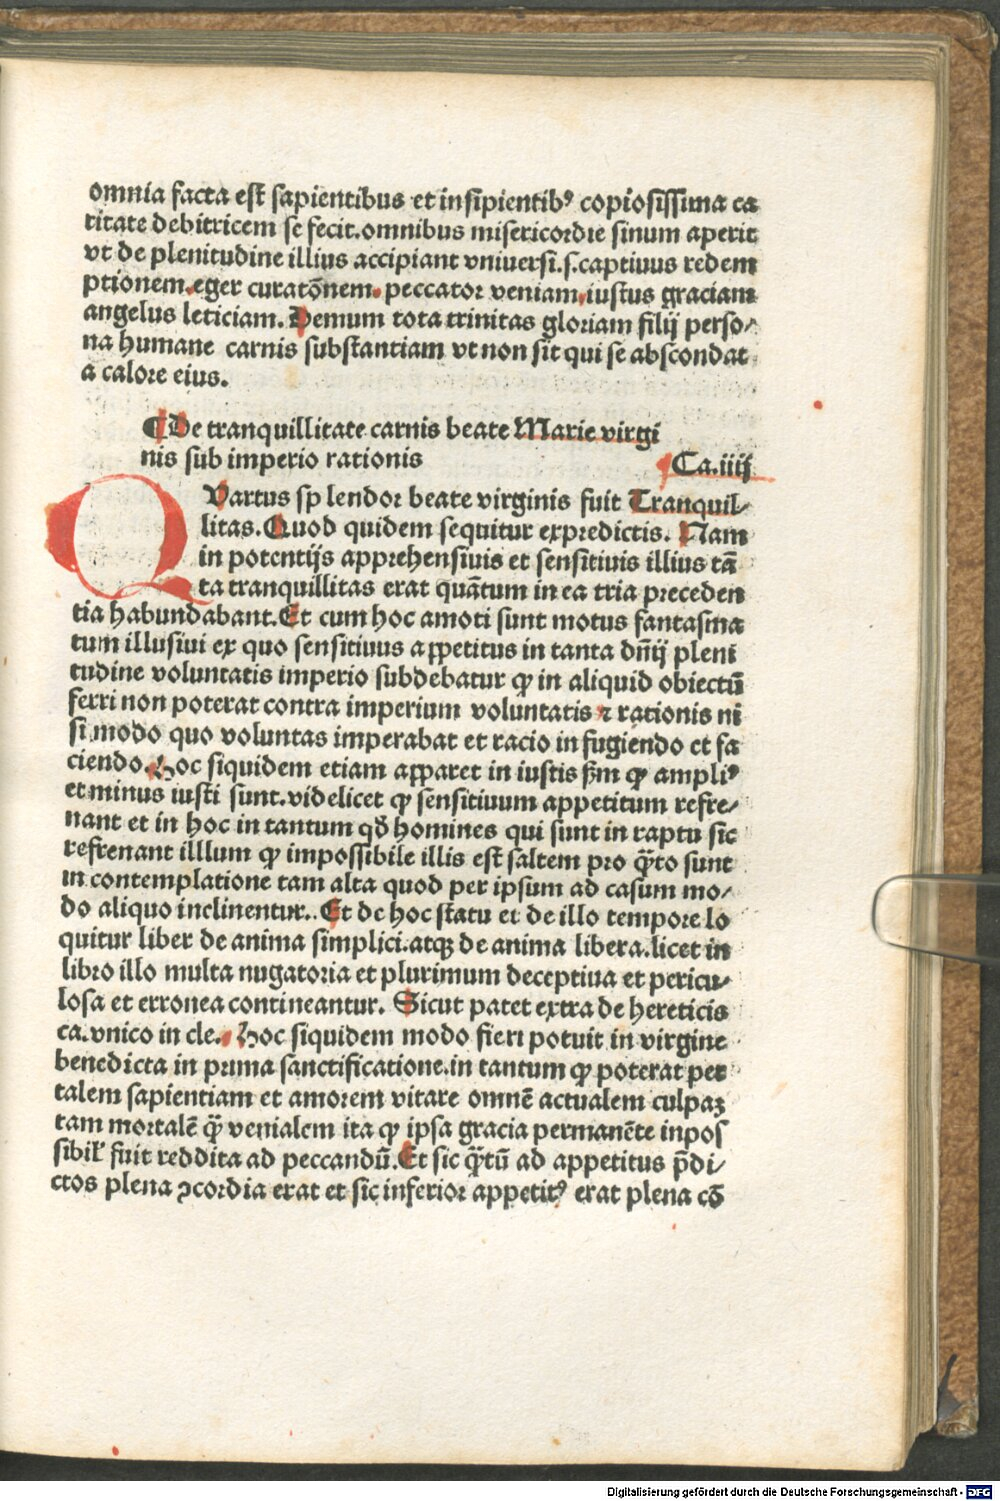 omnia facta est sapientibus et insipientibꝰ copiosissima ca
ritate debitricem se fecit.omnibus misericordie sinum aperit
vt de plenitudine illius accipiant vniuersi.s.captiuus redem
ptionem.eger curatōnem.peccator veniam,iustus graciam
angelus leticiam. Demum tota trinitas gloriam filij perso⸗
na humane carnis substantiam vt non sit qui se abscondat
a calore eius.
¶De tranquillitate carnis beate Marie virgi
nis sub imperio rationis
Ca.iiij
QVartus splendor beate virginis fuit Tranquil⸗
litas.Quod quidem sequitur expredictis. Nam
in potentijs apprehensiuis et sensitiuis illius tā
ta tranquillitas erat quātum in ea tria preceden
tia habundabant.Et cum hoc amoti sunt motus fantasma
tum illusiui ex quo sensitiuus appetitus in tanta dn̄ij pleni
tudine voluntatis imperio subdebatur ꝙ in aliquid obiectū
ferri non poterat contra imperium voluntatis ⁊ rationis ni
si modo quo voluntas imperabat et racio in fugiendo et fa
ciendo.Hoc siquidem etiam apparet in iustis ẜm ꝙ ampliꝰ
et minus iusti sunt.videlicet ꝙ sensitiuum appetitum refre⸗
nant et in hoc in tantum qđ homines qui sunt in raptu sic
refrenant illlum ꝙ impossibile illis est saltem pro qᷓto sunt
in contemplatione tam alta quod per ipsum ad casum mo⸗
do aliquo inclinentur..Et de hoc statu et de illo tempore lo
quitur liber de anima simplici.atqꝫ de anima libera.licet in
libro illo multa nugatoria et plurimum deceptiua et pericu⸗
losa et erronea contineantur. Sicut patet extra de hereticis
ca.vnico in cle. Hoc siquidem modo fieri potuit in virgine
benedicta in prima sanctificatione.in tantum ꝙ poterat per
talem sapientiam et amorem vitare omnē actualem culpaꝫ
tam mortalē qᷓ venialem ita ꝙ ipsa gracia permanēte inpos
sibilꝭ fuit reddita ad peccandū.Et sic qᷓtū ad appetitus p̄di⸗
ctos plena ꝯcordia erat et sic inferior appetitꝰ erat plena cō
Digitalisierung gefördert durch die Deutsche Forschungsgemeinschaft - DFG